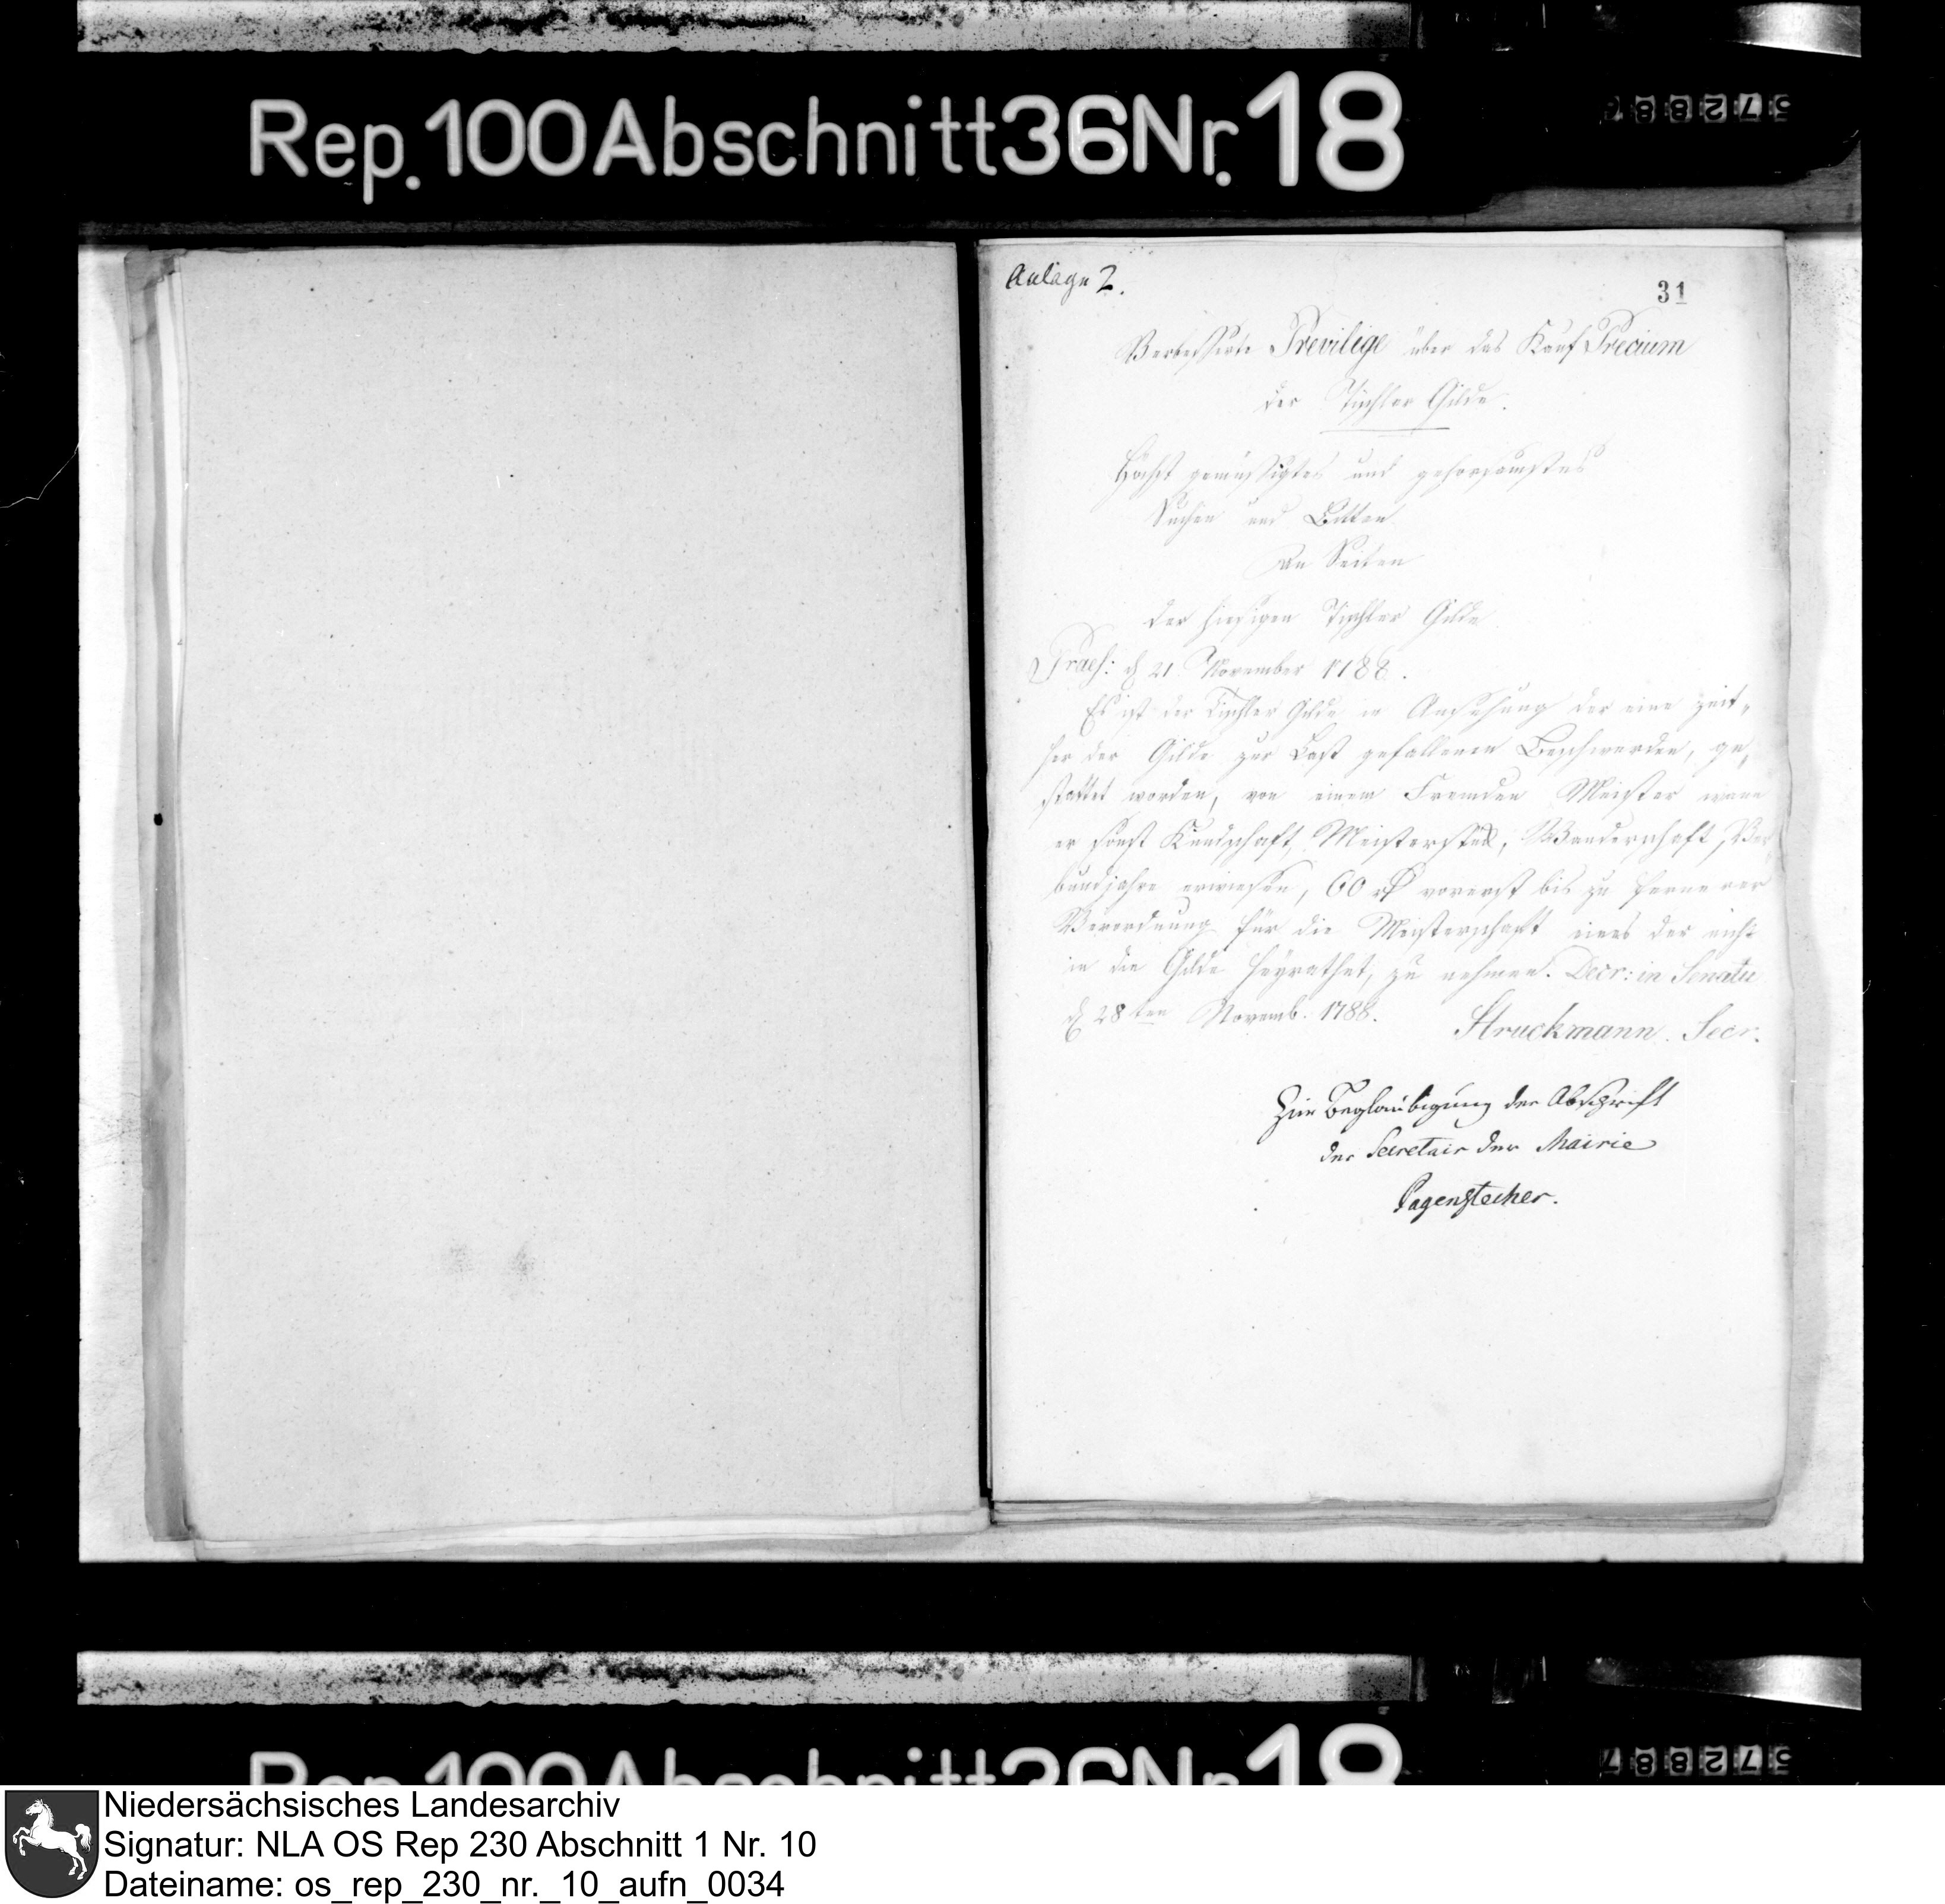 Rep. 100 Abschnitt 36 Nr. 18
Anlage 2.
31
Verbesserte Previlige über das Kauf Precium
der Tischler Gilde.
Höchst gemüssigtes und gehorsamstes
Suchen und Bitten
An Seiten
der hiesigen Tischler Gilde
Praes: d 21 November 1788.
Es ist der Tischler Gilde in Ansehung der eine zeit-
her der Gilde zur Last gefallenen Beschwerden, ge-
stattet worden, von einem Fremden Meister wenn
er sonst Kundschaft, Meisterstük, Wanderschaft,
bundjahre erwiesen, 60 rt vorerst bis zu fernerer
Verordnung für die Meisterschaft eines der nicht
in die Gilde heyrathet, zu nehmen. Decr: in Senatu
d 28ten Novemb. 1788.
Struckmann. Secr.
Zur Beglaubigung der Abschrift
der Secretair der Mairie
Pagenstecher.
Rep. 100 Abschnitt 36 Nr. 18
Niedersächsisches Landesarchiv
Signatur: NLA OS Rep 230 Abschnitt 1 Nr. 10
Dateiname: os_rep_230_nr._10_aufn_0034